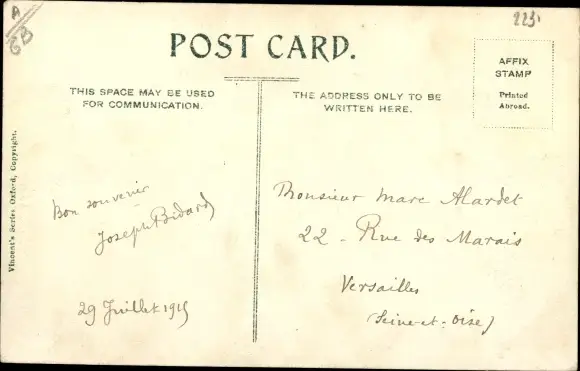 A
GB
223
POST CARD.
THIS SPACE MAY BE USED
FOR COMMUNICATION.
THE ADDRESS ONLY TO BE
WRITTEN HERE.
AFFIX
STAMP
Printed
Abroad.
Vincent's Series Oxford, Copyright.
Bon souvenir
Joseph Bidard
29 Juillet 1915
Monsieur Marc Alardet
22 - Rue des Marais
Versailles
(Seine-et-Oise)